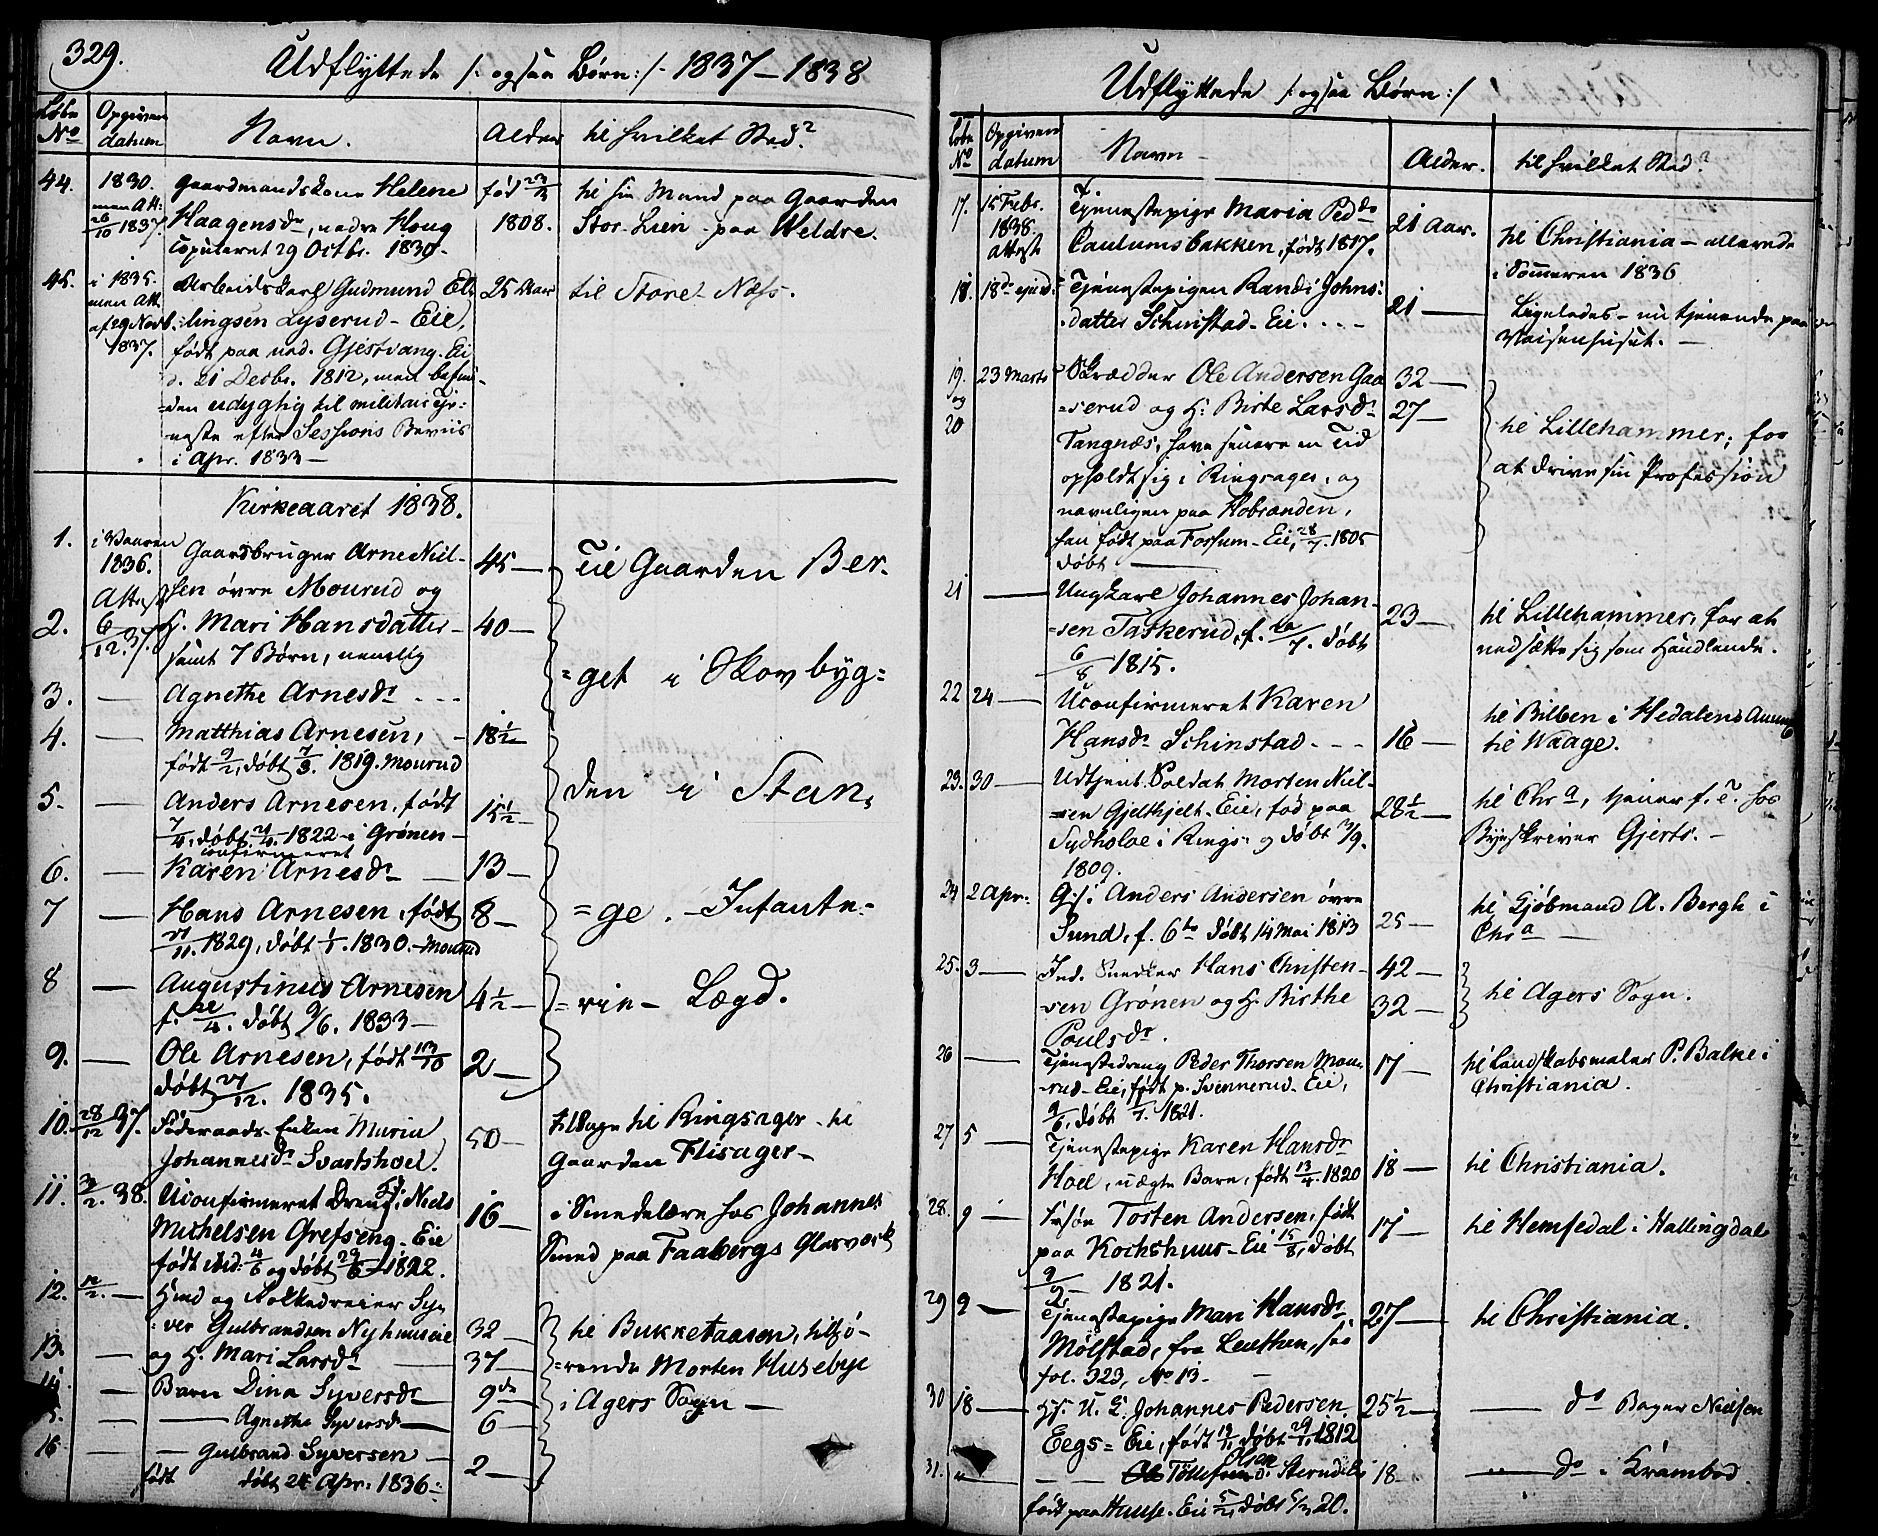 329.
Udflyttede /: ogsaa Børn :/ 1837-1838
Løbe No
Opgiven datum
Navn.
Alder
til hvilket Sted?
44.
1830.
men Att:
26/10 1837.
Gaardmandskone Helene
Haagensdr, nedre Houg
copuleret 29 Octbr. 1830-
fød 23/4
1808.
til sin Mand paa Gaarden
Stor-Lien paa Veldre.
45.
i 1835.
men Att.
af 29 Novb.
1837.
Arbeidskarl Gudmund El-
lingsen Lyserud-Eie,
født paa ned. Gjestvang-Ei
d. 21 Decbr. 1812, men befun-
den udygtig til militair Tje-
neste efter Sessions Beviis
i Apr. 1833-
25 Aar
til Store-Næss.
Kirkeaaret 1838.
1.
i Vaaren
1836.
Attest
Gaardbruger Arne Niel-
sen øvre Mourud og
45-
Til Gaarden Ber-
2.
6/12 37.
H. Mari Hansdatter-
samt 7 Børn, nemlig
40-
=get i Skovbyg=
3.
Agnethe Arnesdr
4.
Matthias Arnesen,
født 9/2, døbt 7/3. 1819. Mourud
18½
den i Stan,
5.
Anders Arnesen, født
7/4, døbt 21/4. 1822 i Grønen-
confirmeret
15½
6.
Karen Arnesdr
13-
7
Hans Arnesen, født
21/11. 1829, døbt 1/1. 1830.-Mourud
8-
=ge.-Infante-
8
Augustinus Arnesen
f. 22/4. døbt 9/6. 1833-
4½-
=rie-Lægd.
9.
Ole Arnesen, født 13/10
døbt 21/12. 1835.
2-
10.
28/12 37.
Føderaads-Enken Maria
Johannesdr Svartshoel.
50-
tilbage til Ringsager-til
Gaarden Flisager-
11.
3/2. 38.
Uconfirmeret Dreng Niels
Michelsen Grefseng-Eie
født ibid: 4/6 og døbt 29/6 1822.
16-
i Smedelære hos Johannes
Smed paa Faabergs Glasværk
12.
12/2.
Hmd og Rokkedreier Sy-
ver Gulbrandsen Nyhuus eie
32
til Bukketaasen, tilhø-
13.
og H. Mari Larsdr
37-
=rende Morten Huseby
14
Barn Dina Syversdr
9 do
i Agers Sogn-
Agnethe Syversdr
6-
16
Gulbrand Syversen
født døbt 24 Apr. 1836-
2-
Udflyttede /: ogsaa Børn :/
Løbe No
Opgiven datum
Navn-
Alder.
til hvilket Sted?
17.
15 Febr.
1838.
attest
Tjenestepige Maria Pedsdr
Paulumsbakken, født 1817.
21 Aar.
til Christiania-allerede
i Sommeren 1836
18.
18de ejusd:
Tjenestepigen Randi Johns:
datter Schinstad-Eie.
21
Ligeledes-nu tjenende paa
Vaisenhuset.-
19.
og
20
23 Marts
Skrædder Ole Andersen Gaa
=serud og H: Birte Larsdr
Tangnæs, have senere en Tid
opholdt sig i Ringsager, og
navnligen paa Kobsanden,
han født paa Fossum-Eie, 28/7. 1805
døbt
32-
27-
til Lillehammer, for
at drive sin Profession
21
Ungkarl Johannes Johan-
sen Taskerud, f. /7. døbt
6/8 1815.
23-
til Lillehammer, for at
nedsætte sig som Handlende.
22
24
Uconfirmeret Karen
Hansdr Schinstad.
16
til Bilben i Hedalens Annex
til Waage.
23.
30
Udtjent Soldat Morten Niel-
sen Gjelthjelt-Eie, fød paa
Sydholoe i Rings. og døbt 3/9.
1809.
28½
til Chra, tjener f. T. hos
Byeskriver Gjerts.-
24
2 Apr:
G.f. Anders Andersen øvre
Sund, f. 6te døbt 14 Mai 1813
25-
til Kjøbmand A. Bergh i
Chra
25.
3
Ind. Snedker Hans Christen-
sen Grønen og H. Birthe
Poulsdr.
42-
32-
til Agers Sogn.
26
Tjenestedreng Peder Thorsen Mou-
rud-Eie, født p. Svennerud-Eie,
9/6, døbt 1/7. 1821.
17-
til Landskabsmaler P. Balke i
Christiania.
27
5
Tjenestepige Karen Hansdr
Hoel, uægte Barn, født 13/4. 1820
18-
til Christiania.
28.
9
Torsten Andersen, født
paa Kochshuus-Eie 15/8, døbt
9/9 1821.
17-
til Hemsedal i Hallingdal
29
9
Tjenestepige Mari Hansdr
Mølstad, fra Leuthen, see
fol. 323, No 13.-
27-
til Christiania.
30
18
U. S. Johannes Pedersen
Eegs-Eie, født 19/11, døbt 29/11 1812
25½-
do Bager Nielsen
31.
Olsen
Tollefsrud Sterud Eie
født paa Huuse-Eie 5/2, døbt 20.
18-
do i Krambod.